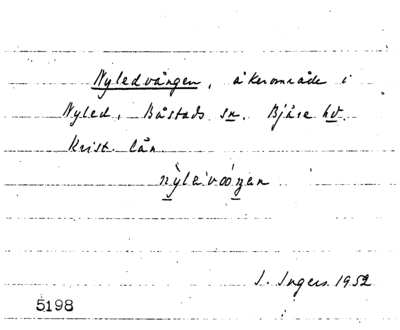 Nyledvången, åkerområde i
Nyled, Båstads sn. Bjäre hd.
Krist. län
nỳleivoóŋen
I. Ingers 1952
5198